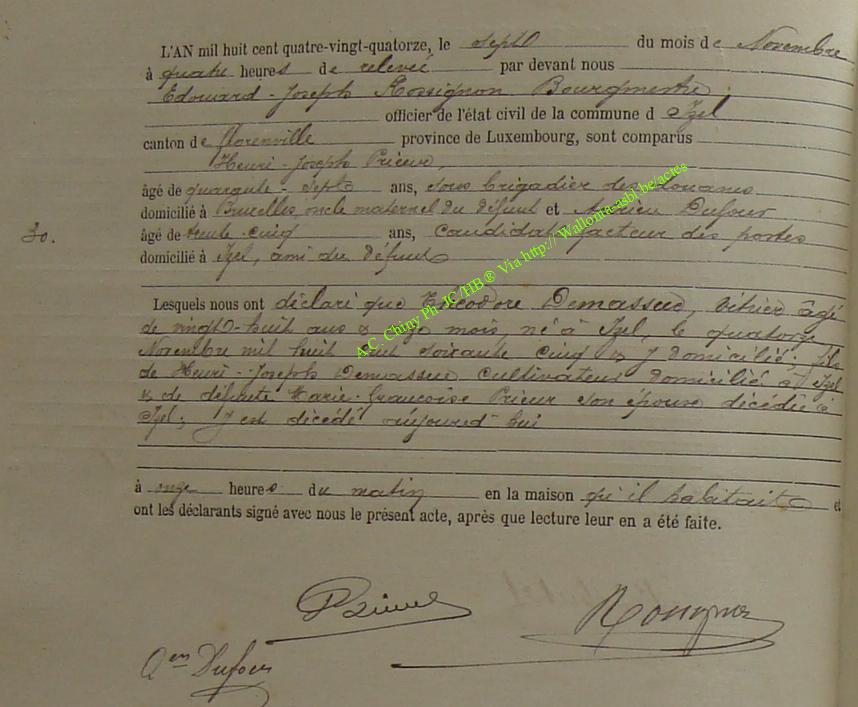 L'AN mil huit cent quatre-vingt-quatorze, le sept du mois de Novembre
à quatre heures de relevée par devant nous
Edouard-Joseph Rossignon Bourgmestre
officier de l'état civil de la commune d Izel
canton de florenville province de Luxembourg, sont comparus
Henri-Joseph Prieur,
âgé de quarante-sept ans, sous brigadier des douanes
domicilié à Bruxelles, oncle maternel du défunt et Dufour
30.
âgé de trente-cinq ans, candidat facteur des postes
domicilié à Izel, ami du défunt
Lesquels nous ont déclaré que Théodore Demasseue, vitrier âgé
de vingt-huit ans & mois, né à Izel, le quatorze
Novembre mil huit cent soixante cinq & y domicilié; fils
de Henri-Joseph Demasseue cultivateur domicilié à Izel
& de défunte Marie-françoise Prieur son épouse décédée à
Izel; y est décédé aujourd'hui
à onze heures du matin en la maison qu'il habitait et
ont les déclarants signé avec nous le présent acte, après que lecture leur en a été faite.
Prieur
Rossignon
Dufour
A.C. Chiny Ph JC/HB® Via http:// Wallonia-asbl.be/actes